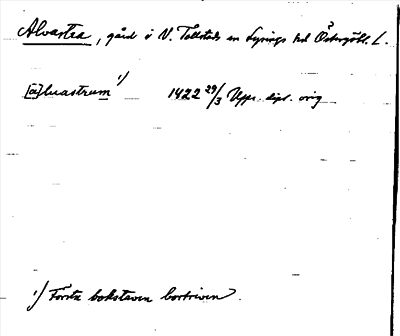 Alvastra, gård i V. Tollstads sn Lysings hd Östergötl. L.
[a]luastrum ¹⁾ 1422 29/3 Upps. dipl. orig
¹⁾ Första bokstaven bortriven.